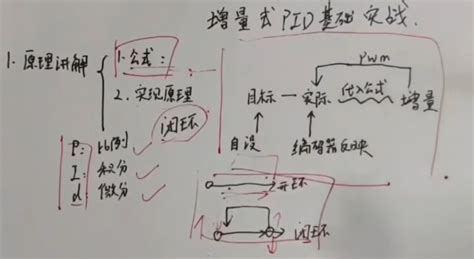 增量式PID基础实战.
1.原理讲解
1.公式:
2.实现原理
闭环
P: 比例
I: 积分
d: 微分
pwm
目标 — 实际 代入公式 增量
自设 编码器反映
开环
闭环